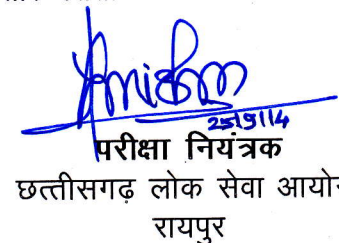 25/9/14
परीक्षा नियंत्रक
छत्तीसगढ़ लोक सेवा आयोग
रायपुर